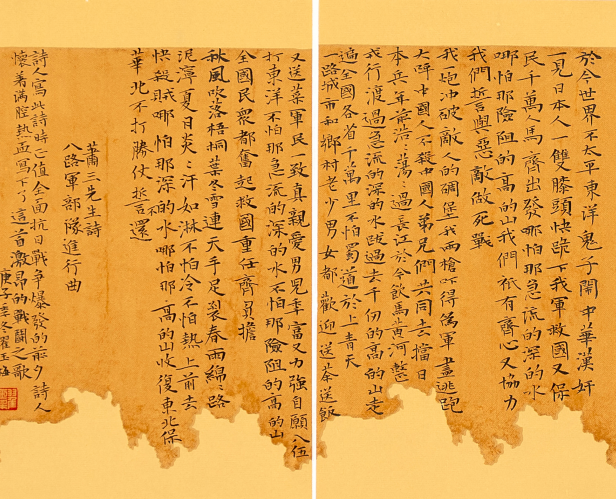 於今世界不太平東洋鬼子鬧中華漢奸
一見日本人一雙膝頭快跪下我軍救國又保
民千萬人馬齊出發哪怕那急流的深的水
哪怕那險阻的高的山我們衹有齊心又協力
我們誓與惡敵做死戰
我炮沖破敵人的碉堡我兩槍吓得偽軍盡逃跑
大呼中國人不殺中國人弟兄們共同去擋日
本兵年菻浩〻蕩〻過長江於今飲馬黄河整
戎行渡過急流的深的水跋過去千仞的高的山走
遍全國各省千萬里不怕蜀道於上青天
一路城市和鄉村老少男女都歡迎送茶送飯
又送菜軍民一致真親愛男兒年富又力强自願入伍
打東洋不怕那急流的深的水不怕那險阻的高的山
全國民衆都奮起救國重任齊肩擔
秋風吹落梧桐葉冬雪連天手足裂春雨綿〻路
泥濘夏日炎〻汗如淋不怕冷不怕熱上前去
快殺賊哪怕那深的水哪怕那高的山收復東北保
華北不打勝仗誓不還
蕭三先生詩
八路軍部隊進行曲
詩人寫此詩時已值全面抗日戰争爆發的前夕詩人
懷着满腔热血寫下了這首激昂的戰鬪之歌
庚子季冬